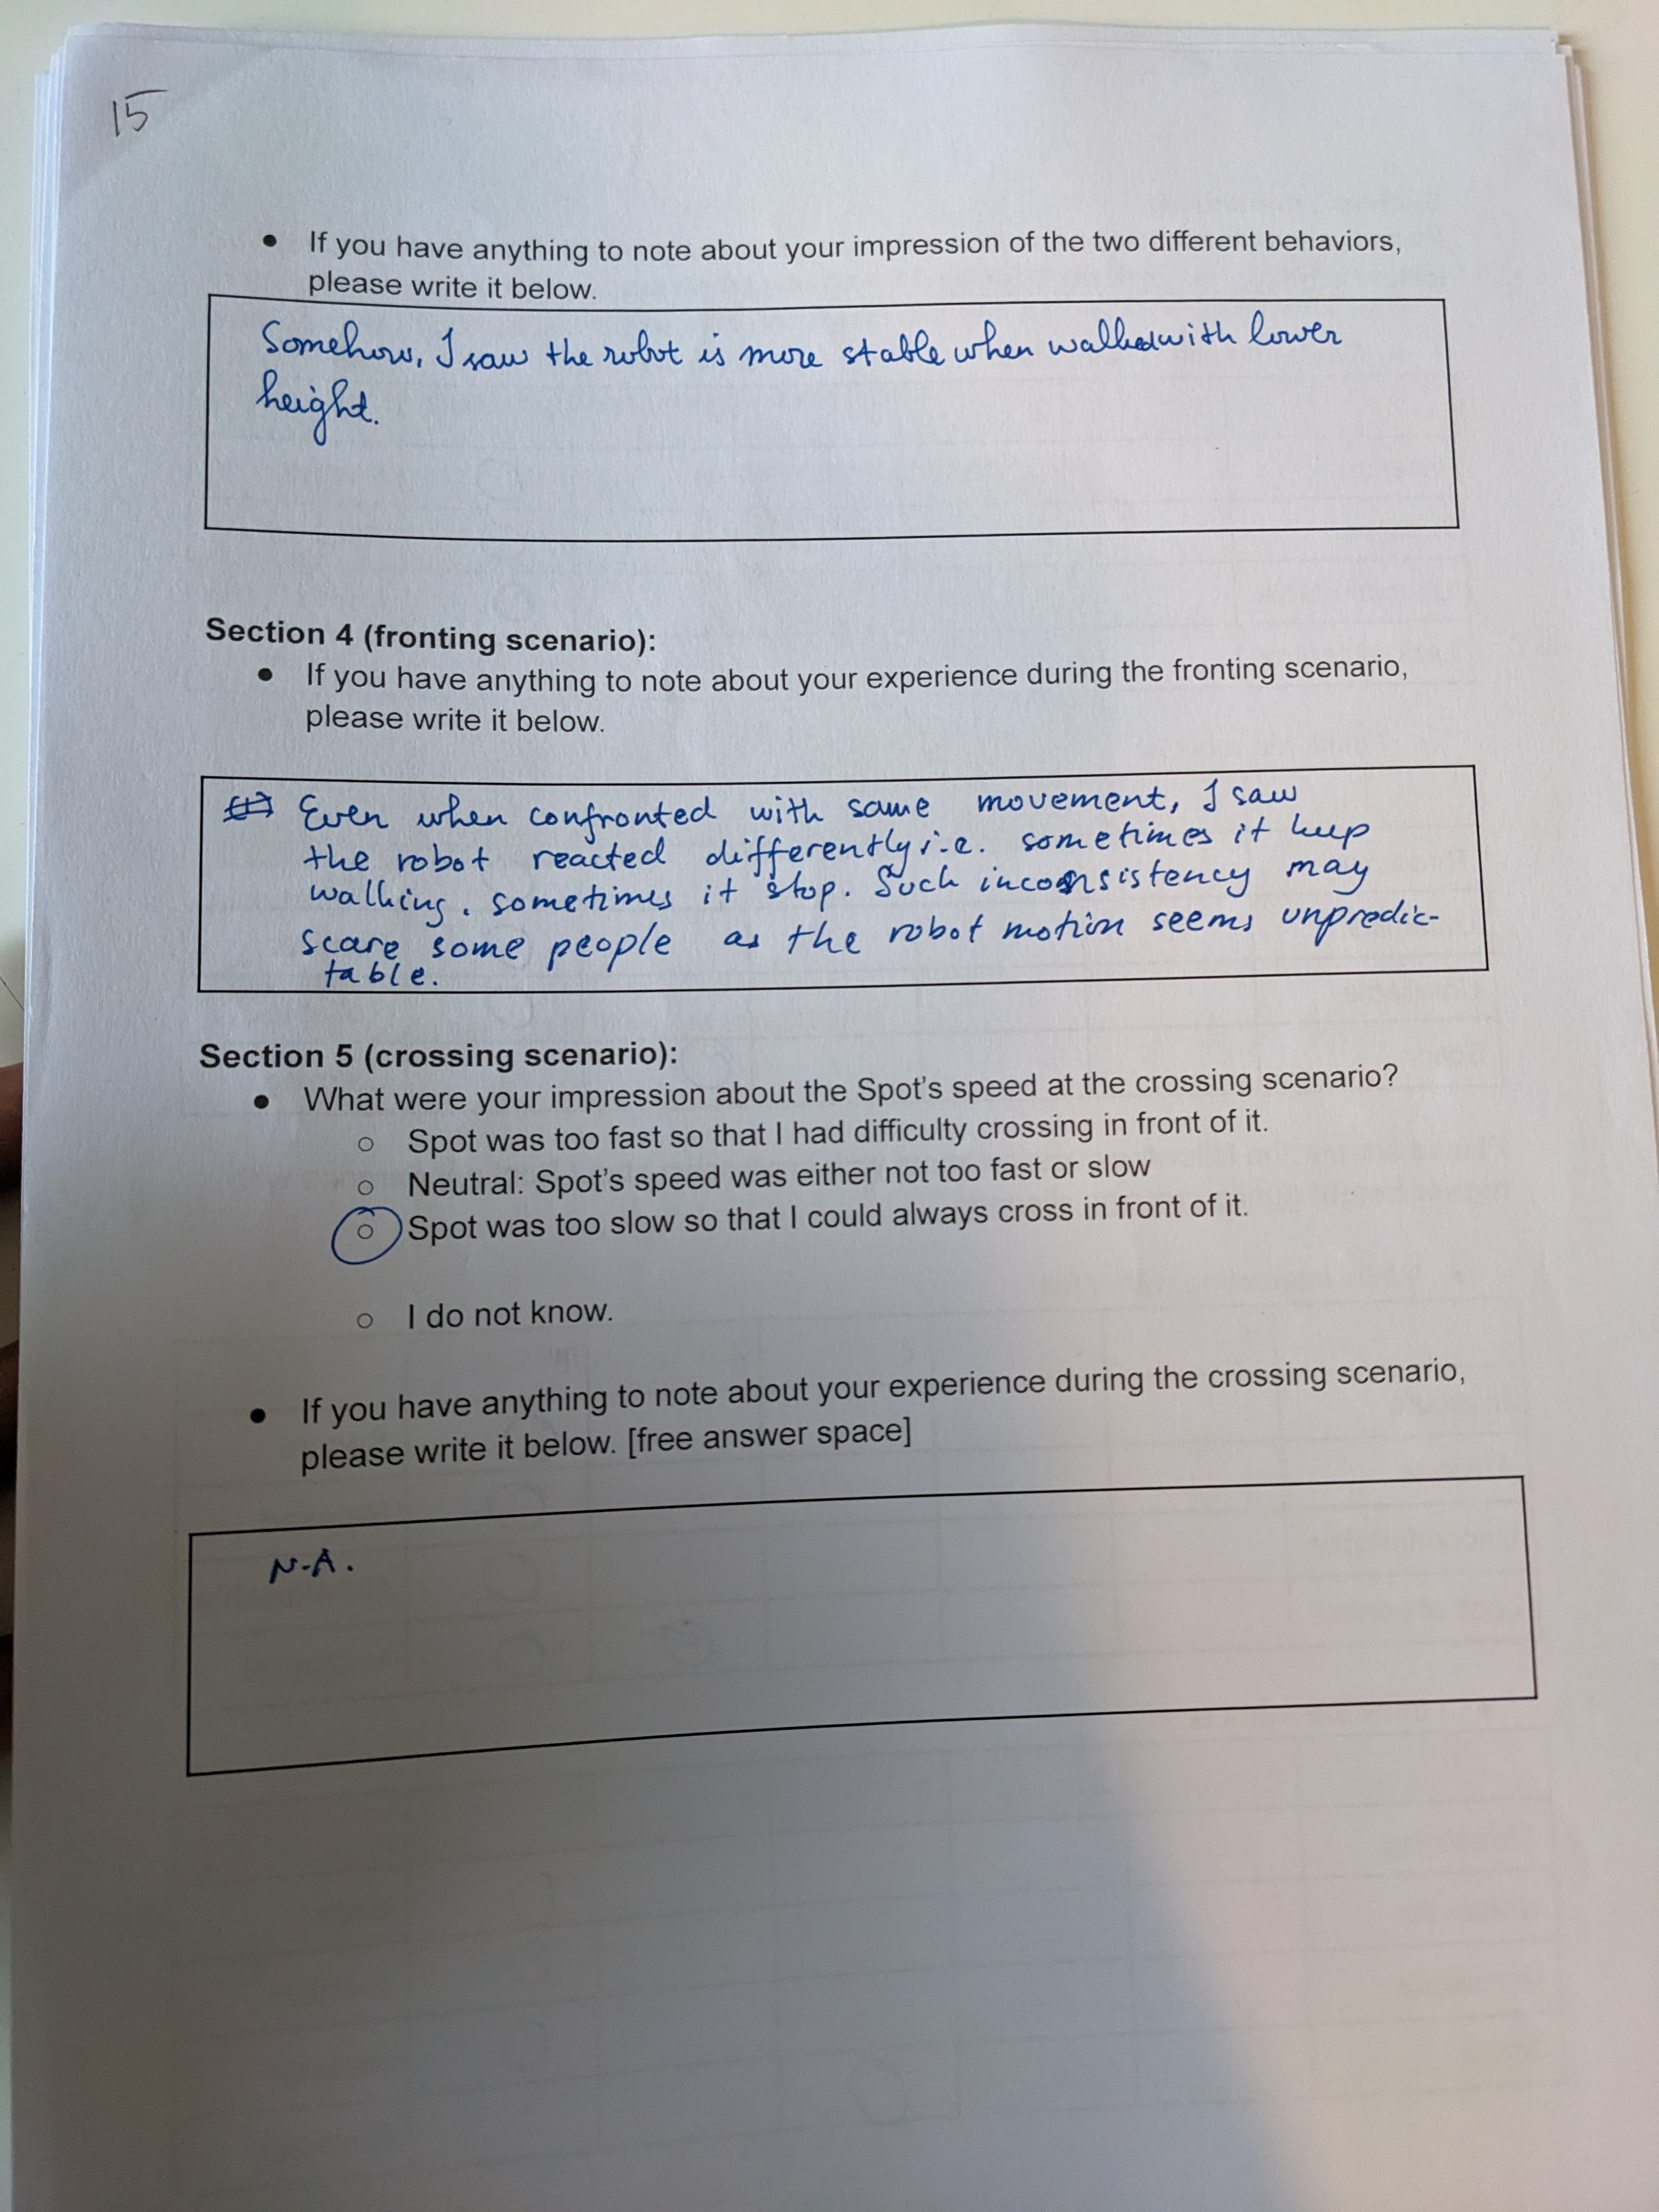 15
● If you have anything to note about your impression of the two different behaviors,
please write it below.
Somehow, I saw the robot is more stable when walked with lower
height.
Section 4 (fronting scenario):
● If you have anything to note about your experience during the fronting scenario,
please write it below.
Even when confronted with same movement, I saw
the robot reacted differently i.e. sometimes it keep
walking, sometimes it stop. Such inconsistency may
scare some people as the robot motion seems unpredic-
table.
Section 5 (crossing scenario):
● What were your impression about the Spot's speed at the crossing scenario?
○ Spot was too fast so that I had difficulty crossing in front of it.
○ Neutral: Spot's speed was either not too fast or slow
○ Spot was too slow so that I could always cross in front of it.
○ I do not know.
● If you have anything to note about your experience during the crossing scenario,
please write it below. [free answer space]
N-A.